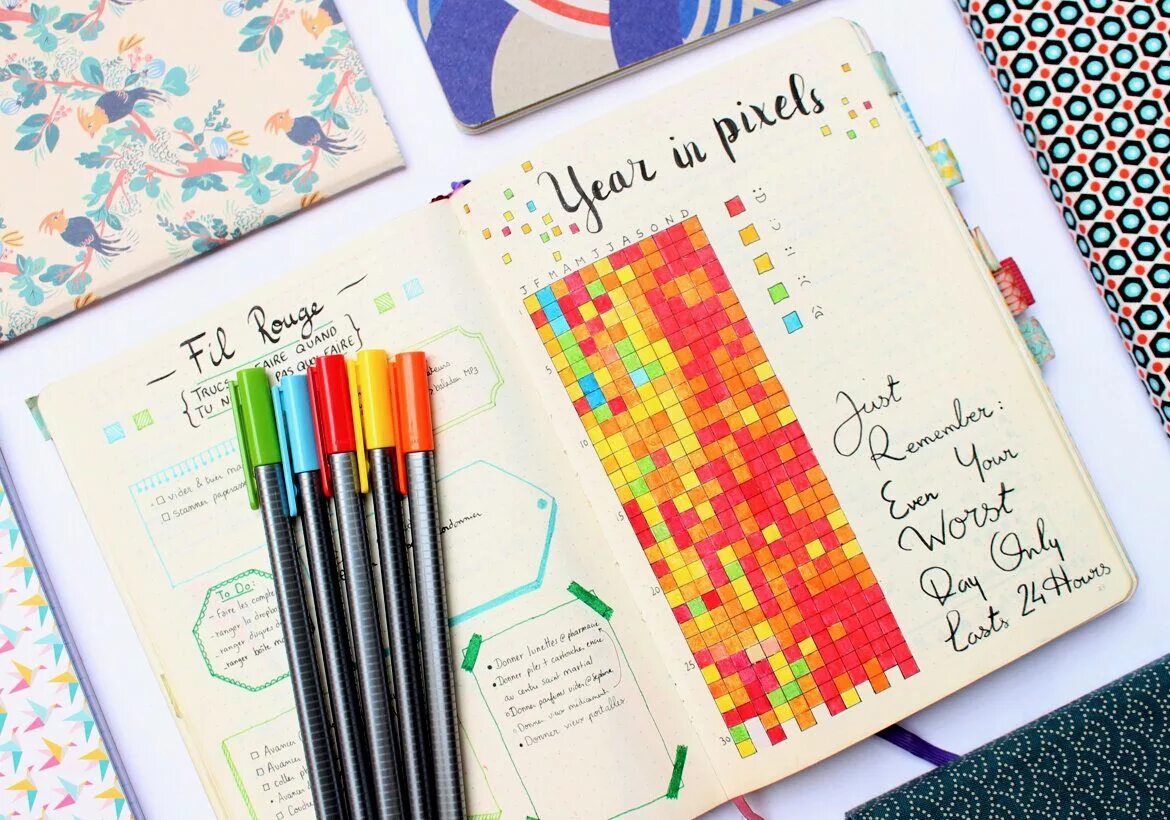 Fil Rouge
{TRUCS FAIRE QUAND
TU PAS QUOI FAIRE}
baladeur MP3
□ vider & trier
□ scanner paperasse
To Do:
- Faire les
- ranger la dropbox
- ranger disques
- ranger boîte
• Donner lunettes @pharmacie
• Donner piles + cartouche encre
au centre saint martial
• Donner parfums vides @Sephora
• Donner vieux médicament
• Donner vieux portables
□ Avancer
□ Avancer
□ coller
Year in pixels
J F M A M J J A S O N D
1
5
10
15
20
25
30
:D
:)
:|
:(
Just
Remember:
Even Your
Worst
Day Only
Lasts 24 Hours